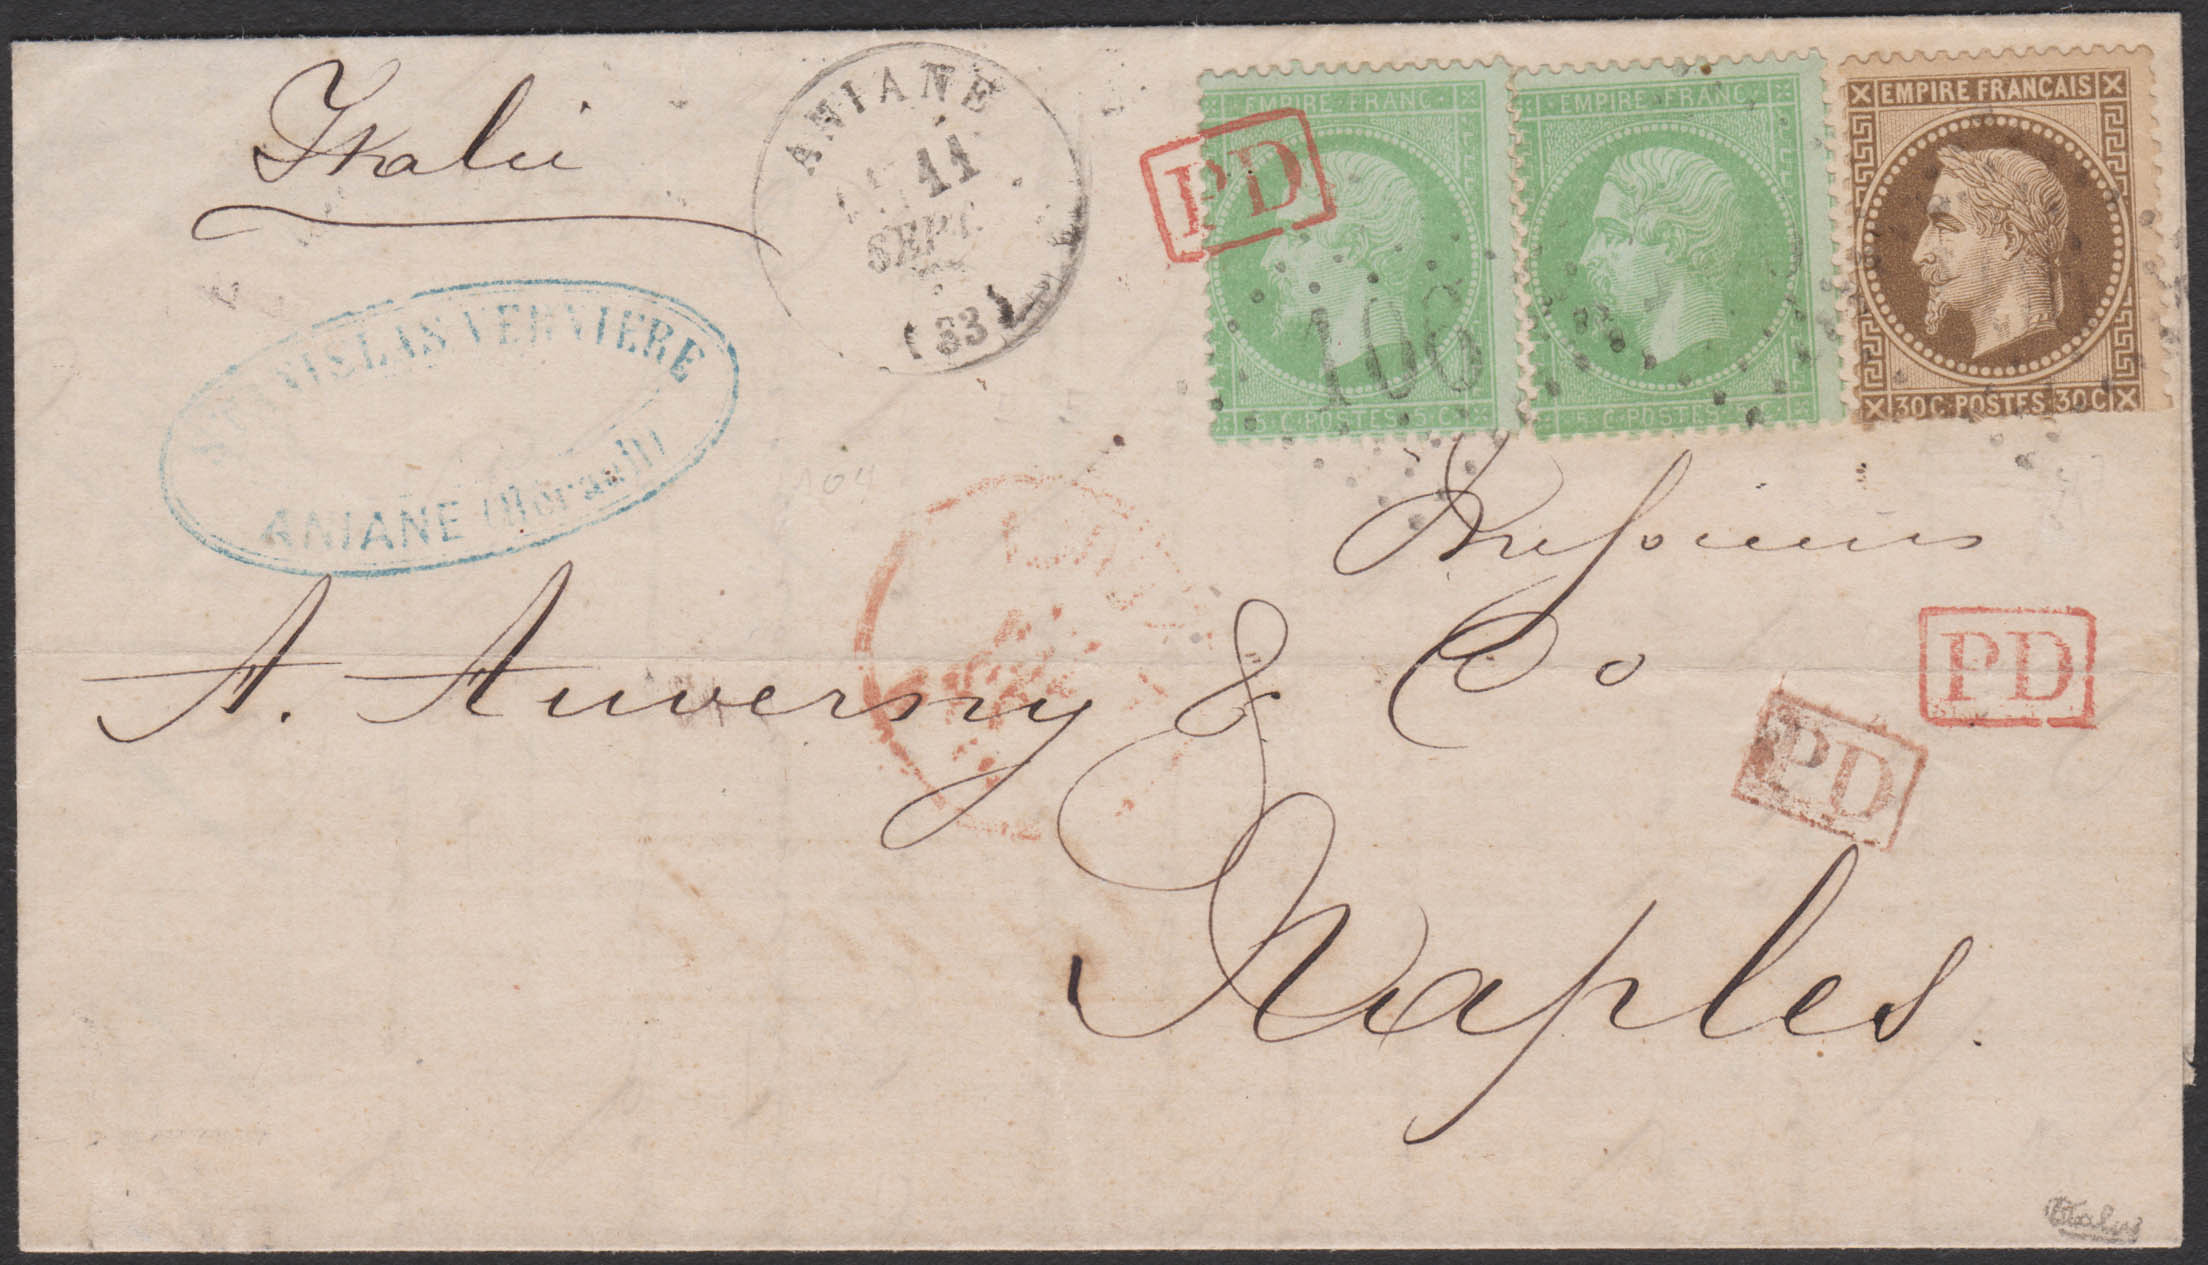 Italie
ANIANE
11
SEPT.
(33)
EMPIRE FRANC
5 C POSTES 5 C
EMPIRE FRANC
5 C POSTES C
EMPIRE FRANÇAIS
30 C POSTES 30 C
PD
106
STANISLAS VERNIERE
ANIANE (Hérault)
104
Messieurs
A. Auverny & Co
PD
PD
Naples.